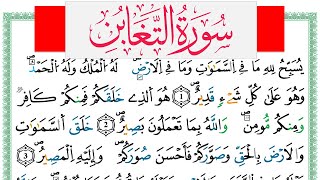 سُورَةُ التَّغَابُن
يُسَبِّحُ لِلّٰهِ مَا فِي السَّمٰوٰتِ وَمَا فِي الْاَرْضِ ۚ لَهُ الْمُلْكُ وَلَهُ الْحَمْدُ ۖ
وَهُوَ عَلٰى كُلِّ شَيْءٍ قَدِيْرٌ ۝1 هُوَ الَّذِيْ خَلَقَكُمْ فَمِنْكُمْ كَافِرٌ
وَّمِنْكُمْ مُّؤْمِنٌ ۚ وَاللّٰهُ بِمَا تَعْمَلُوْنَ بَصِيْرٌ ۝2 خَلَقَ السَّمٰوٰتِ
وَالْاَرْضَ بِالْحَقِّ وَصَوَّرَكُمْ فَاَحْسَنَ صُوَرَكُمْ ۚ وَاِلَيْهِ الْمَصِيْرُ ۝3